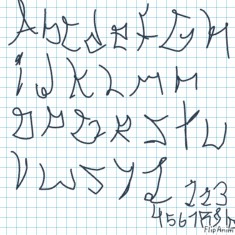 A b c d e f G H
i J K L M n
O P Q R S t U
V W S Y Z
1 2 3
4 5 6 7 8 9 10
FlipAnim